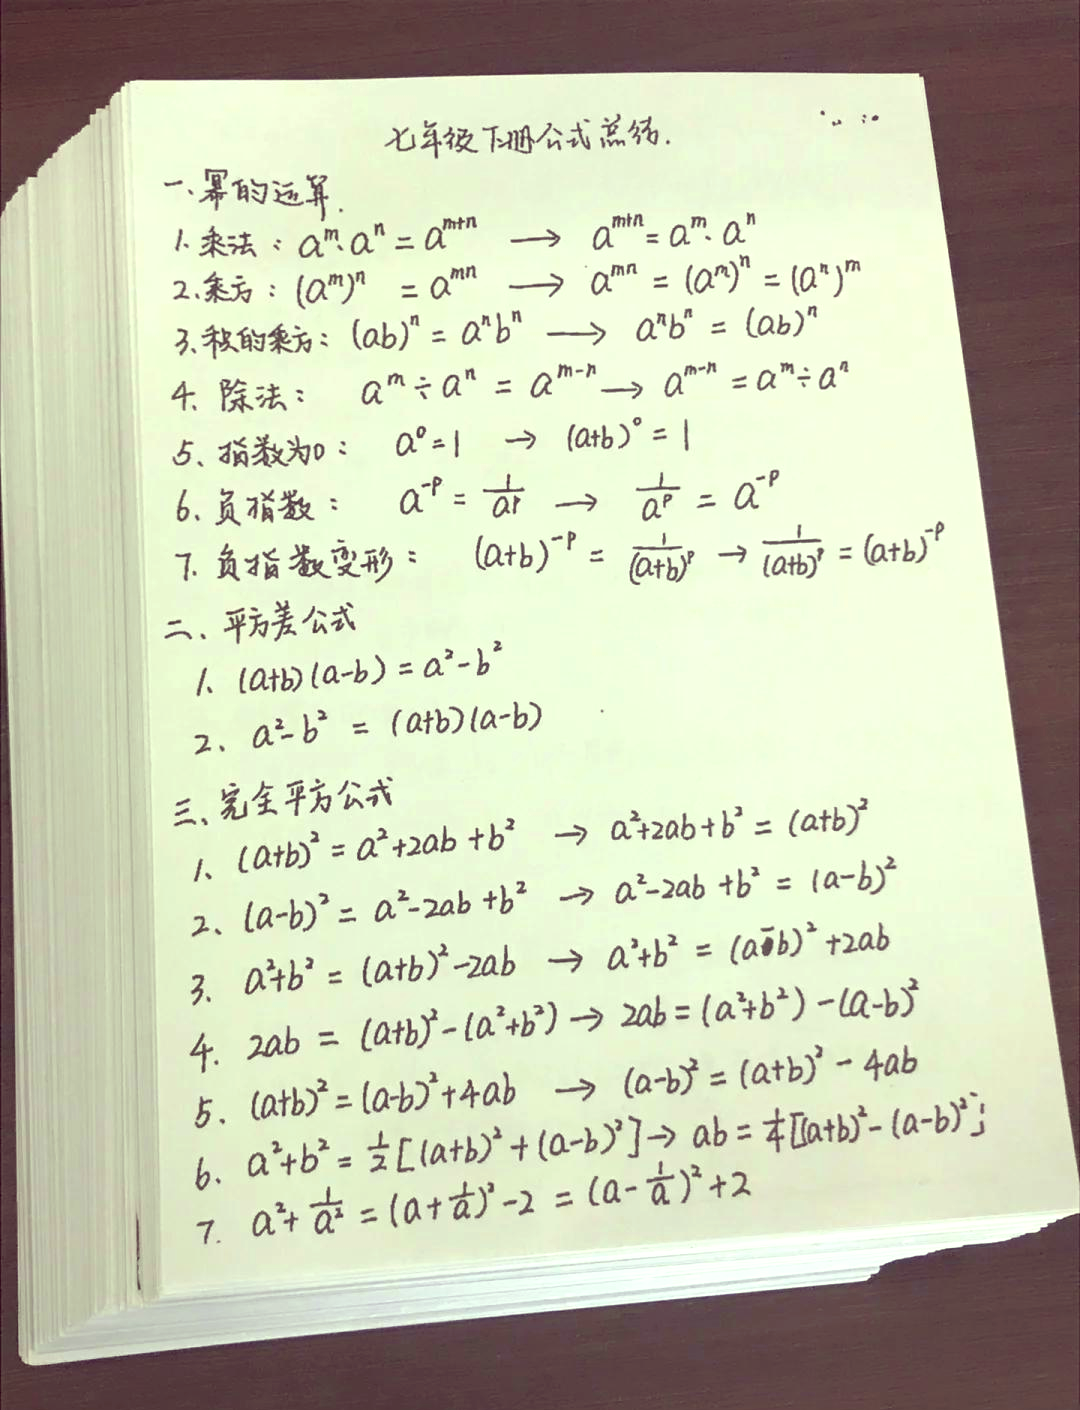 七年级下册公式总结.
一、幂的运算.
1.乘法：aᵐ·aⁿ = aᵐ⁺ⁿ → aᵐ⁺ⁿ = aᵐ·aⁿ
2.乘方：(aᵐ)ⁿ = aᵐⁿ → aᵐⁿ = (aᵐ)ⁿ = (aⁿ)ᵐ
3.积的乘方：(ab)ⁿ = aⁿbⁿ → aⁿbⁿ = (ab)ⁿ
4. 除法： aᵐ÷aⁿ = aᵐ⁻ⁿ → aᵐ⁻ⁿ = aᵐ÷aⁿ
5、指数为0： a⁰=1 → (a+b)⁰ = 1
6. 负指数： a⁻ᵖ = 1/aᵖ → 1/aᵖ = a⁻ᵖ
7. 负指数变形： (a+b)⁻ᵖ = 1/(a+b)ᵖ → 1/(a+b)ᵖ = (a+b)⁻ᵖ
二、平方差公式
1、(a+b)(a-b) = a²-b²
2、a²-b² = (a+b)(a-b)
三、完全平方公式
1、(a+b)² = a²+2ab+b² → a²+2ab+b² = (a+b)²
2、(a-b)² = a²-2ab+b² → a²-2ab+b² = (a-b)²
3. a²+b² = (a+b)²-2ab → a²+b² = (a-b)²+2ab
4. 2ab = (a+b)²-(a²+b²) → 2ab = (a²+b²)-(a-b)²
5、(a+b)² = (a-b)²+4ab → (a-b)² = (a+b)²-4ab
6. a²+b² = 1/2[(a+b)²+(a-b)²] → ab = 1/4[(a+b)²-(a-b)²]
7. a²+1/a² = (a+1/a)²-2 = (a-1/a)²+2